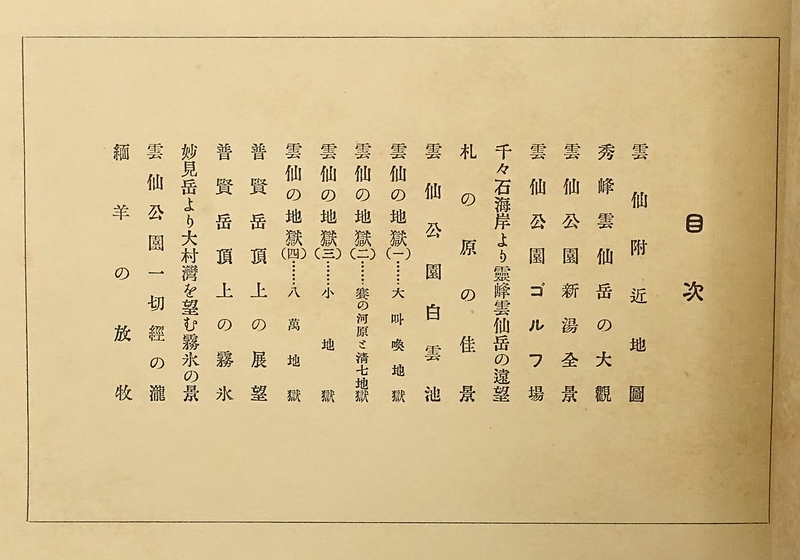 目次
雲仙附近地圖
秀峰雲仙岳の大觀
雲仙公園新湯全景
雲仙公園ゴルフ場
千々石海岸より靈峰雲仙岳の遠望
札の原の佳景
雲仙公園白雲池
雲仙の地獄(一)……大叫喚地獄
雲仙の地獄(二)……賽の河原と淸七地獄
雲仙の地獄(三)……小地獄
雲仙の地獄(四)……八萬地獄
普賢岳頂上の展望
普賢岳頂上の霧氷
妙見岳より大村灣を望む霧氷の景
雲仙公園一切經の瀧
緬羊の放牧